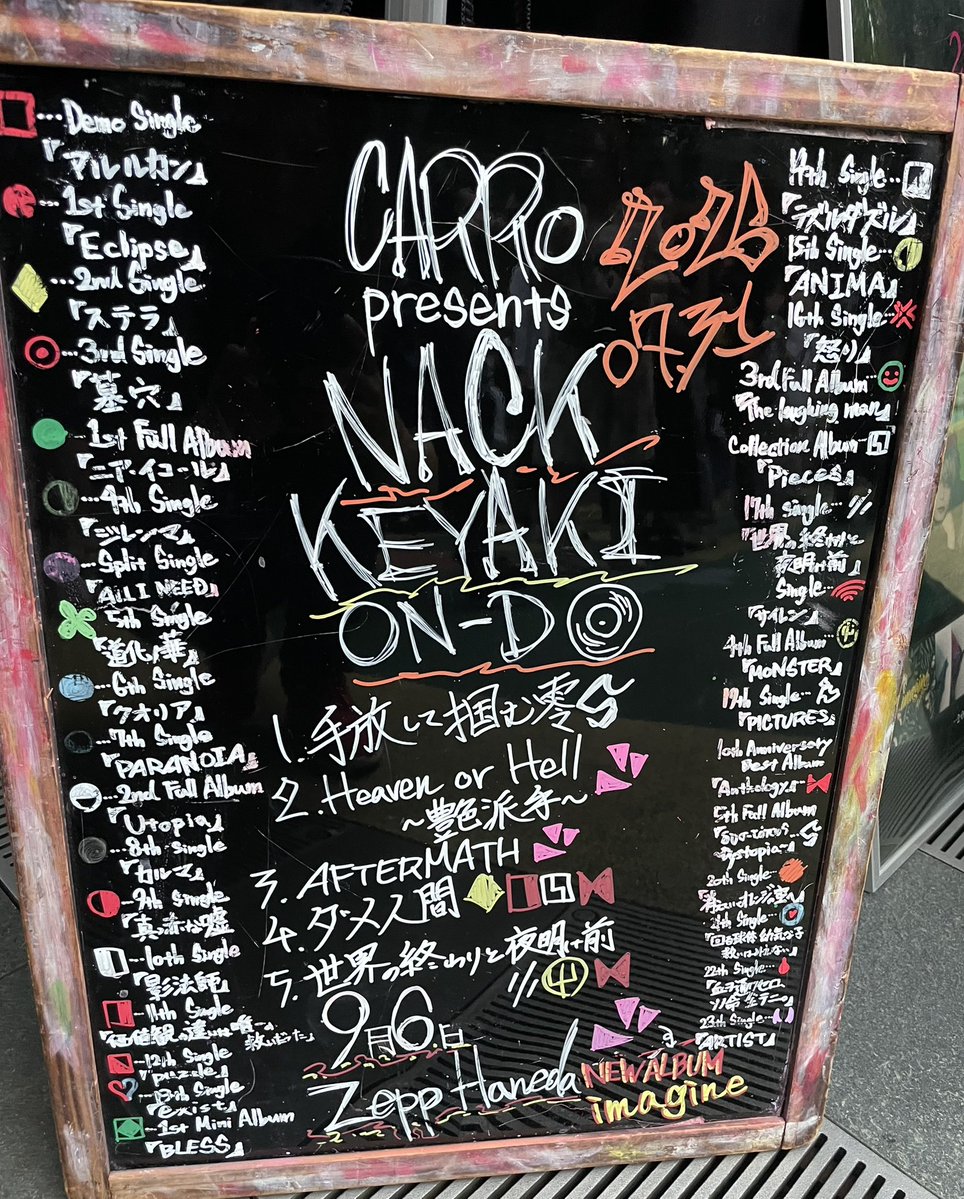 □…Demo Single
『アルルカン』
…1st Single
『Eclipse』
…2nd Single
『ステラ』
…3rd Single
『墓穴』
…1st Full Album
『ニア・イコール』
…4th Single
『ジレンマ』
…Split Single
『ALL I NEED』
…5th Single
『道化ノ華』
…6th Single
『クオリア』
…7th Single
『PARANOIA』
…2nd Full Album
『Utopia』
…8th Single
『カルマ』
…9th Single
『真っ赤な嘘』
…10th Single
『影法師』
…11th Single
『価値観の違いは唯一の救いだった』
…12th Single
『puzzle』
…13th Single
『exist』
…1st Mini Album
『BLESS』
CARRO
presents
2026
07.31
NACK
KEYAKI
ON-DO
1.手放して掴む零
2.Heaven or Hell
～艶派手～
3.AFTERMATH
4.ダメ人間
5.世界の終わりと夜明け前
9月6日
Zepp Haneda
NEW ALBUM
imagine
14th Single…
『ラズルダズル』
15th Single…
『ANIMA』
16th Single…
『怒り』
3rd Full Album…
『The laughing man』
Collection Album…
『Pieces』
17th Single…
『世界の終わりと
夜明け前』
Single…
『サイレン』
4th Full Album
『MONSTER』
19th Single…
『PICTURES』
10th Anniversary
Best Album
『Anthology』…
5th Full Album
Dystopia
20th Single…
21st Single…
22nd Single…
23th Single…
『ARTIST』